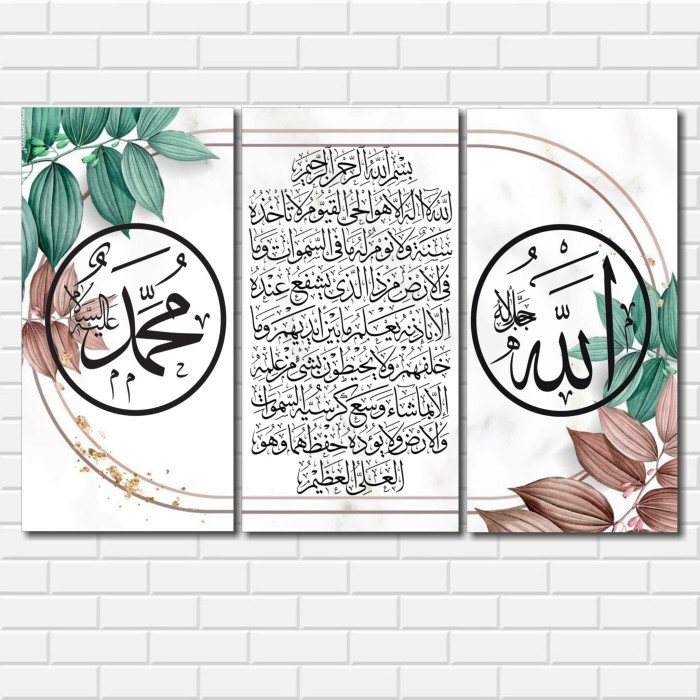 الله
جل جلاله
بسم الله الرحمن الرحيم
الله لا اله الا هو الحي القيوم لا تأخذه
سنة ولا نوم له ما في السموات وما
في الارض من ذا الذي يشفع عنده
الا باذنه يعلم ما بين ايديهم وما
خلفهم ولا يحيطون بشيء من علمه
الا بما شاء وسع كرسيه السموات
والارض ولا يوده حفظهما وهو
العلي العظيم
محمد
عليه السلام